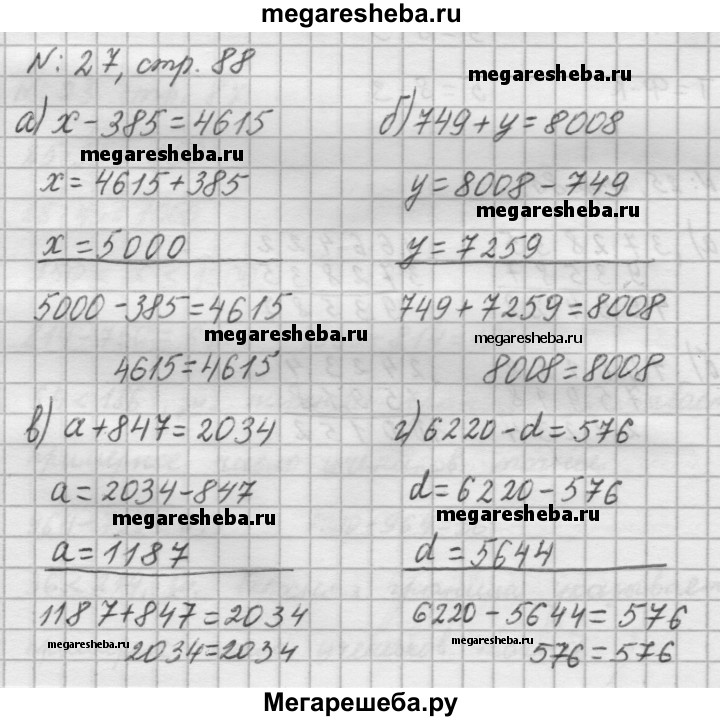 megaresheba.ru
N: 27, стр. 88
megaresheba.ru
а) x - 385 = 4615
б) 749 + y = 8008
megaresheba.ru
x = 4615 + 385
y = 8008 - 749
megaresheba.ru
x = 5000
y = 7259
5000 - 385 = 4615
749 + 7259 = 8008
megaresheba.ru
megaresheba.ru
4615 = 4615
8008 = 8008
в) a + 847 = 2034
г) 6220 - d = 576
a = 2034 - 847
d = 6220 - 576
megaresheba.ru
megaresheba.ru
a = 1187
d = 5644
1187 + 847 = 2034
6220 - 5644 = 576
megaresheba.ru
2034 = 2034
megaresheba.ru
576 = 576
Мегарешеба.ру